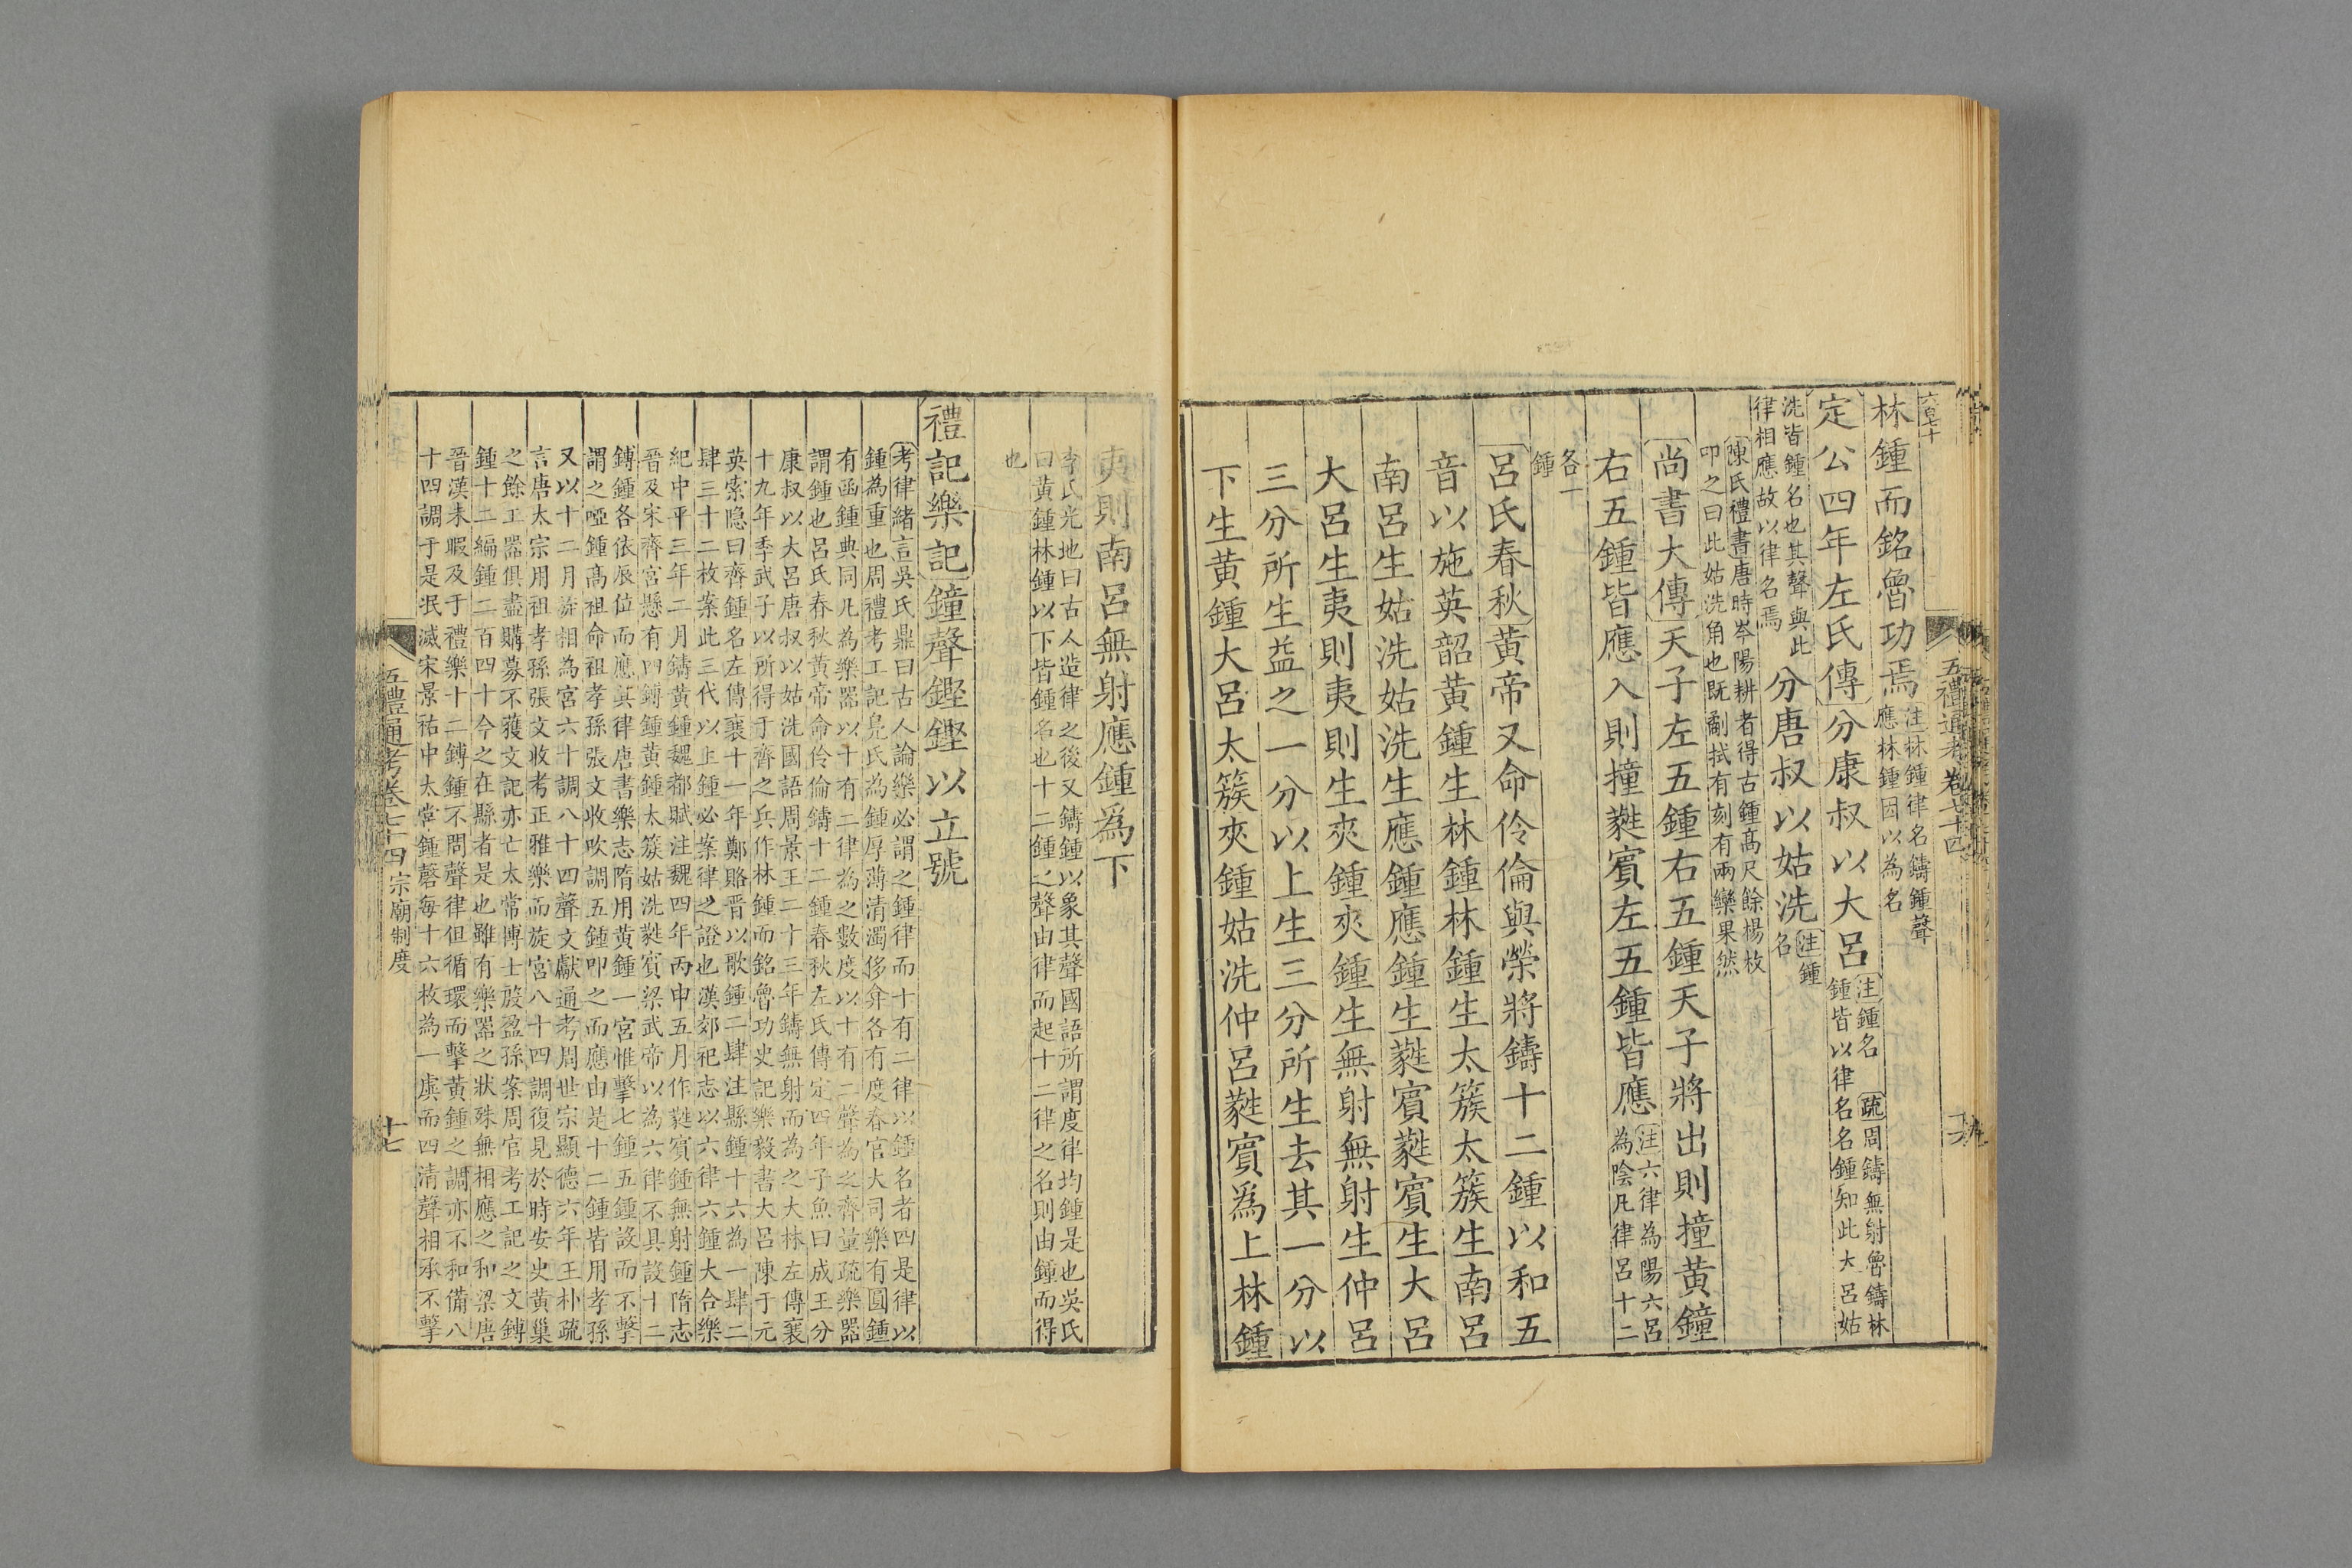 五禮通考卷七十四
林鍾而銘魯功焉注林鍾律名鑄鍾聲
應林鍾因以為名
定公四年左氏傳分康叔以大呂注鍾名 疏周鑄無射魯鑄林
鍾皆以律名名鍾知此大呂姑
洗皆鍾名也其聲與此
律相應故以律名焉
分唐叔以姑洗注鍾
名
陳氏禮書唐時岑陽耕者得古鍾高尺餘楊枚
叩之曰此姑洗角也既劀拭有刻有兩欒果然
尚書大傳天子左五鍾右五鍾天子將出則撞黃鐘
右五鍾皆應入則撞蕤賓左五鍾皆應注六律為陽六呂
為陰凡律呂十二
各一
鍾
呂氏春秋黃帝又命伶倫與榮將鑄十二鍾以和五
音以施英韶黃鍾生林鍾林鍾生太簇太簇生南呂
南呂生姑洗姑洗生應鍾應鍾生蕤賓蕤賓生大呂
大呂生夷則夷則生夾鍾夾鍾生無射無射生仲呂
三分所生益之一分以上生三分所生去其一分以
下生黃鍾大呂太簇夾鍾姑洗仲呂蕤賓爲上林鍾
夷則南呂無射應鍾爲下
李氏光地曰古人造律之後又鑄鍾以象其聲國語所謂度律均鍾是也吳氏
曰黃鍾林鍾以下皆鍾名也十二鍾之聲由律而起十二律之名則由鍾而得
也
禮記樂記鐘聲鏗鏗以立號
考律緒言吳氏鼎曰古人論樂必謂之鍾律而十有二律以鍾名者四是律以
鍾為重也周禮考工記鳧氏為鍾厚薄清濁侈弇各有度春官大司樂有圓鍾
有函鍾典同凡為樂器以十有二律為之數度以十有二聲為之齊量疏樂器
謂鍾也呂氏春秋黃帝命伶倫鑄十二鍾春秋左氏傳定四年子魚曰成王分
康叔以大呂唐叔以姑洗國語周景王二十三年鑄無射而為之大林左傳襄
十九年季武子以所得于齊之兵作林鍾而銘魯功史記樂毅書大呂陳于元
英索隐曰齊鍾名左傳襄十一年鄭賂晋以歌鍾二肆注縣鍾十六為一肆二
肆三十二枚案此三代以上鍾必案律之證也漢郊祀志以六律六鍾大合樂
紀中平三年二月鑄黃鍾魏都賦注魏四年丙申五月作蕤賓鍾無射鍾隋志
晉及宋齊宮懸有四鎛鍾黃鍾太簇姑洗蕤賓梁武帝以為六律不具設十二
鎛鍾各依辰位而應其律唐書樂志隋用黃鍾一宮惟擊七鍾五鍾設而不擊
謂之啞鍾高祖命祖孝孫張文收吹調五鍾叩之而應由是十二鍾皆用孝孫
又以十二月旋相為宮六十調八十四聲文獻通考周世宗顯德六年王朴疏
言唐太宗用祖孝孫張文收考正雅樂而旋宮八十四調復見於時安史黃巢
之餘工器俱盡購募不獲文記亦亡太常博士殷盈孫案周官考工記之文鎛
鍾十二編鍾二百四十今之在縣者是也雖有樂器之狀殊無相應之和梁唐
晉漢未暇及于禮樂十二鎛鍾不問聲律但循環而擊黃鍾之調亦不和備八
十四調于是泯滅宋景祐中太常鍾磬每十六枚為一虡而四清聲相承不擊
五禮通考卷七十四宗廟制度
十七